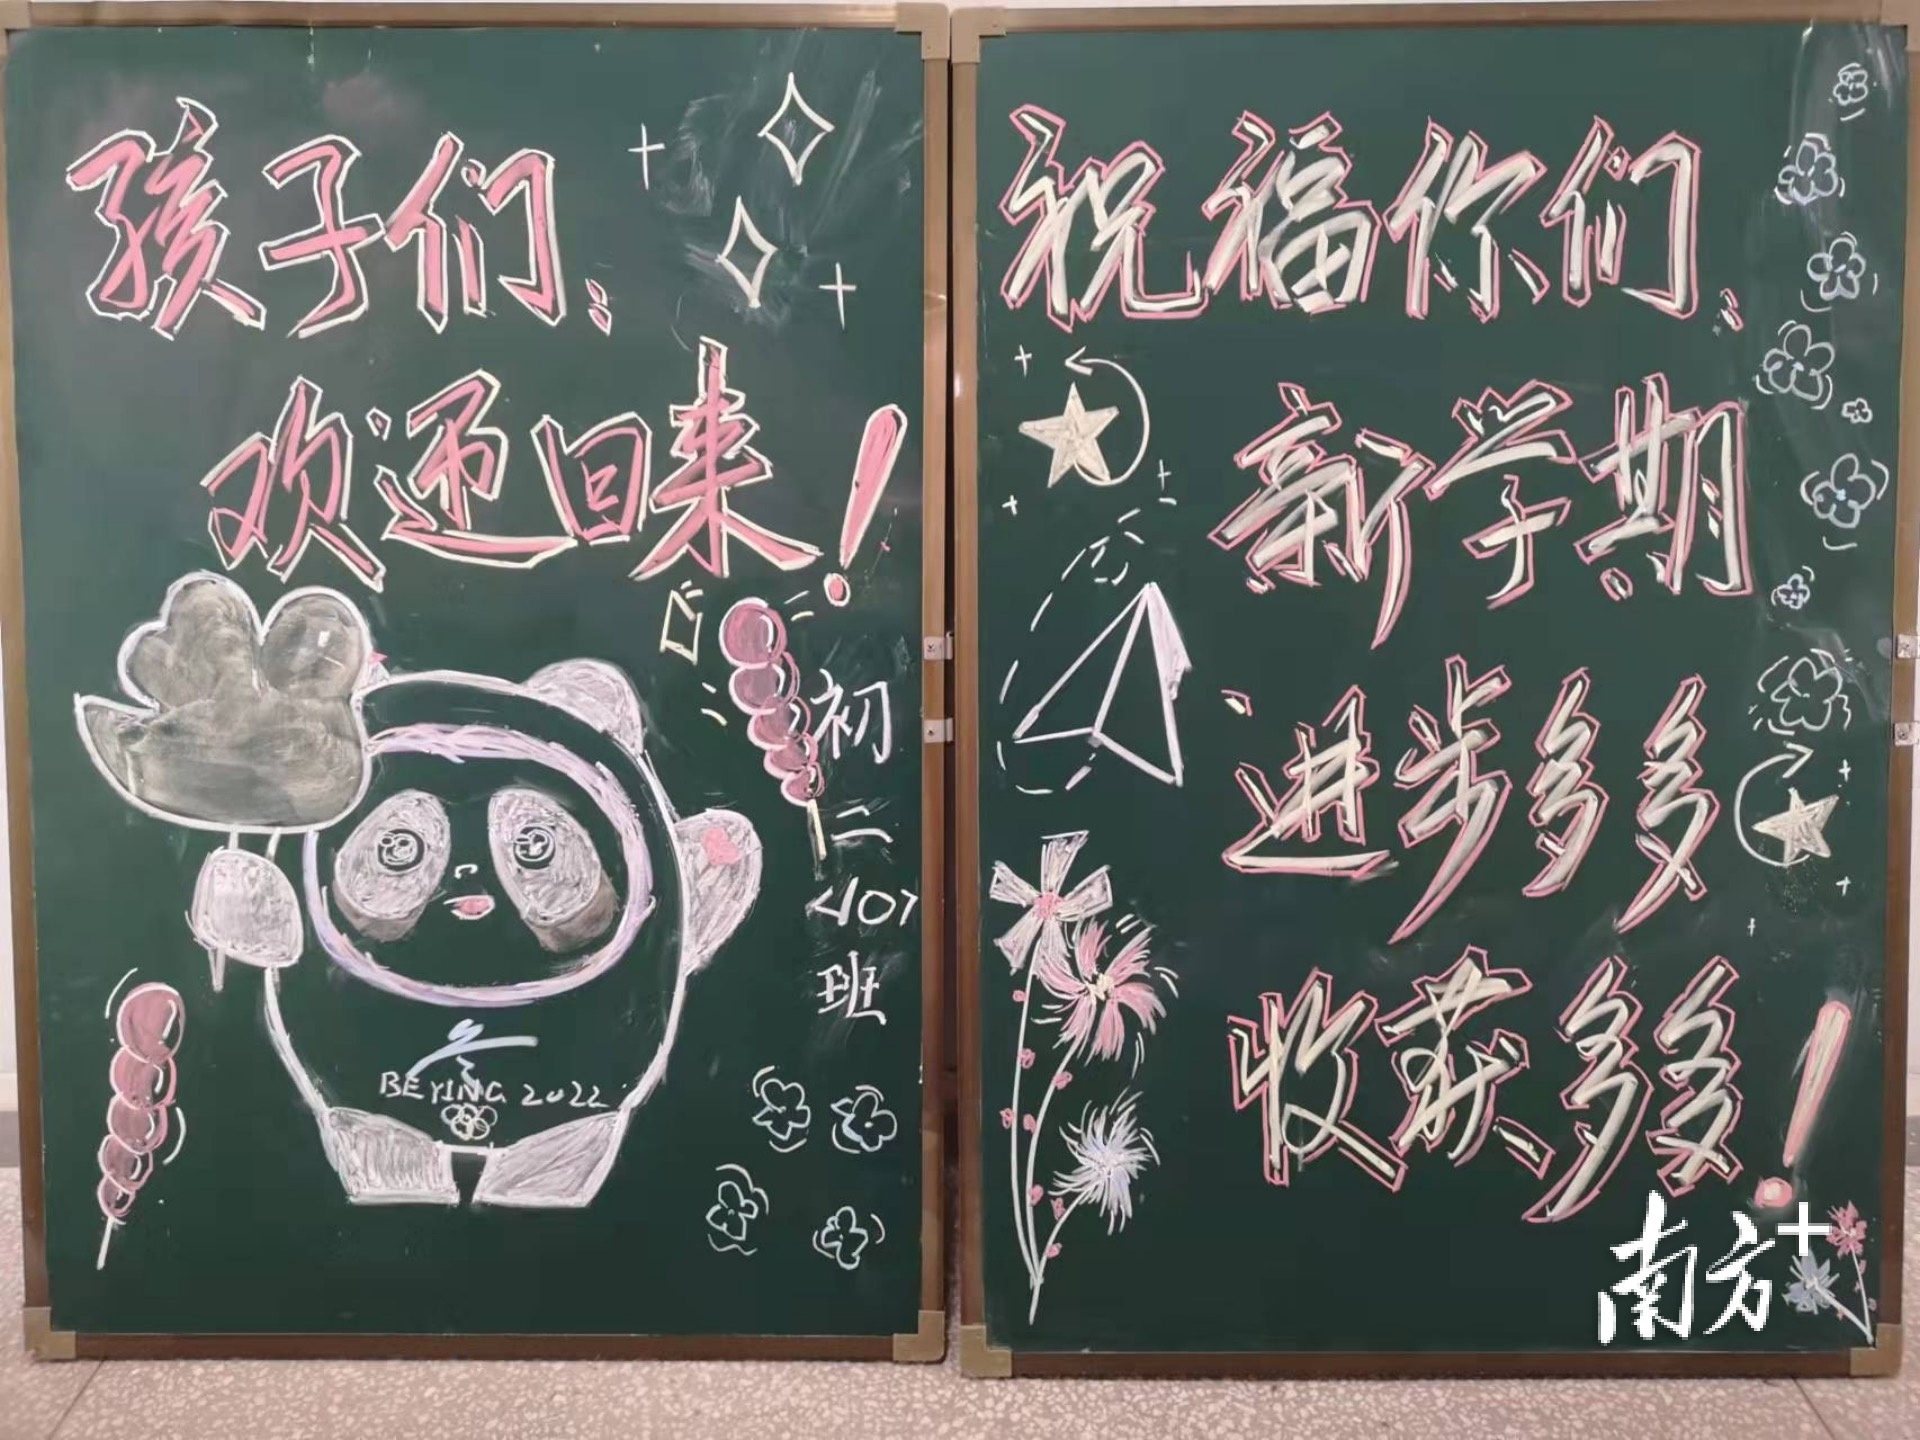 孩子们:
欢迎回来!
初二<10>班
BEYJING 2022
祝福你们:
新学期
进步多多
收获多多!
南方+